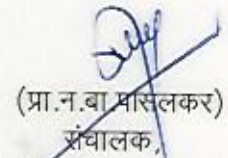 (प्रा.न.बा.पासलकर)
संचालक,